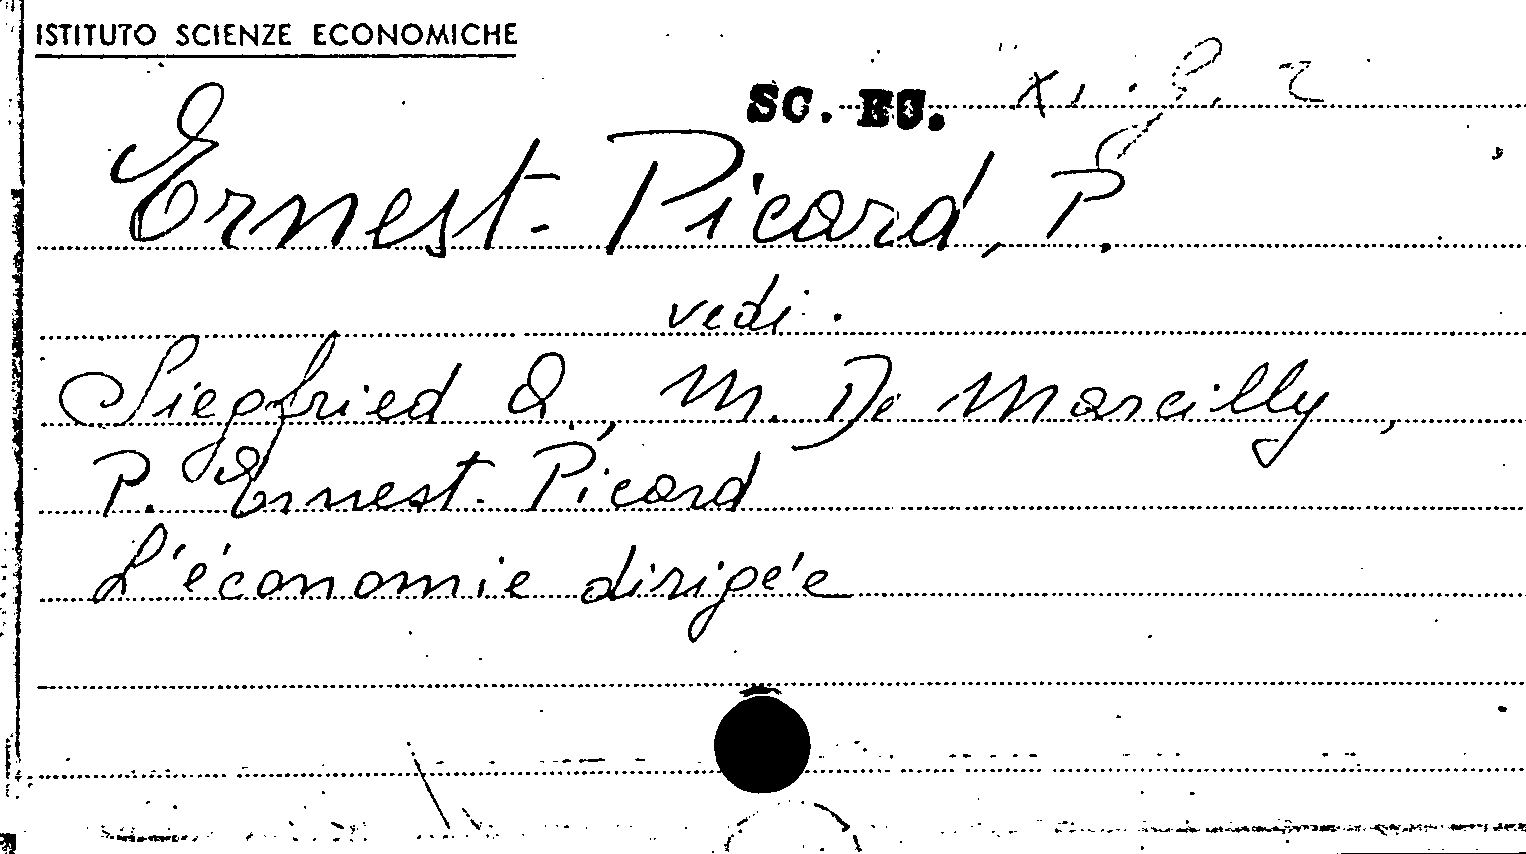 ISTITUTO SCIENZE ECONOMICHE
SC. EC. XI. G. 2
Ernest-Picard, P.
vedi.
Siegfried A., M. De Marcilly,
P. Ernest-Picard
L'économie dirigée